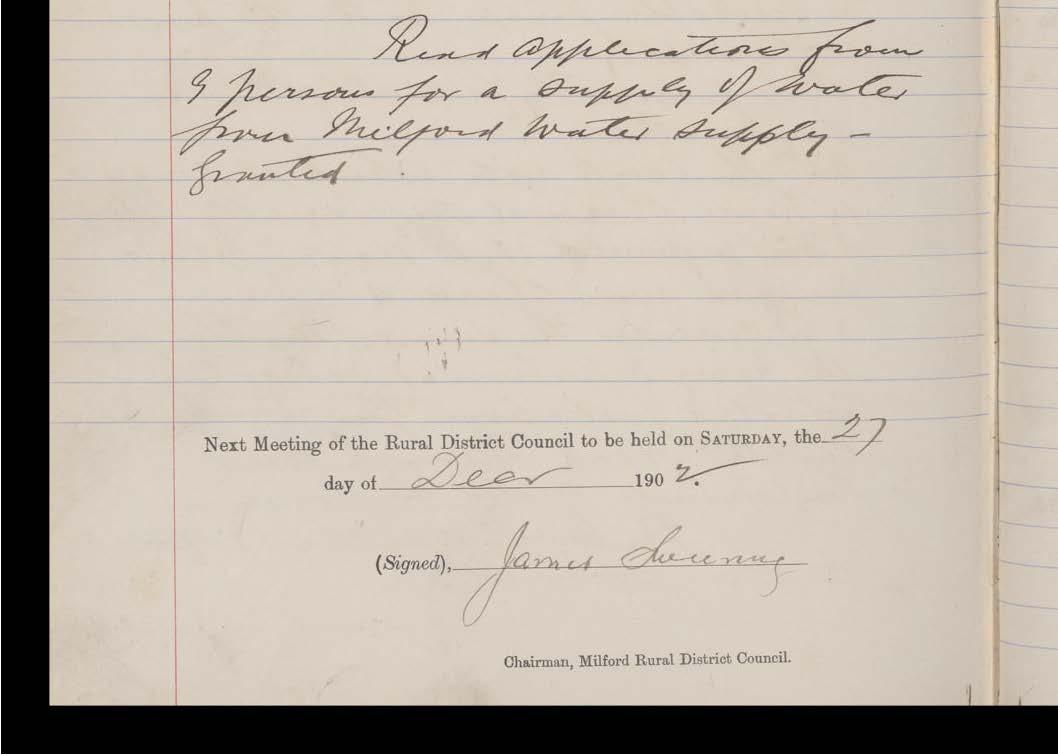 Read applications from
9 persons for a supply of water
from Milford Water Supply -
Granted
Next Meeting of the Rural District Council to be held on SATURDAY, the 27
day of Decr 1902.
(Signed), James
Chairman, Milford Rural District Council.